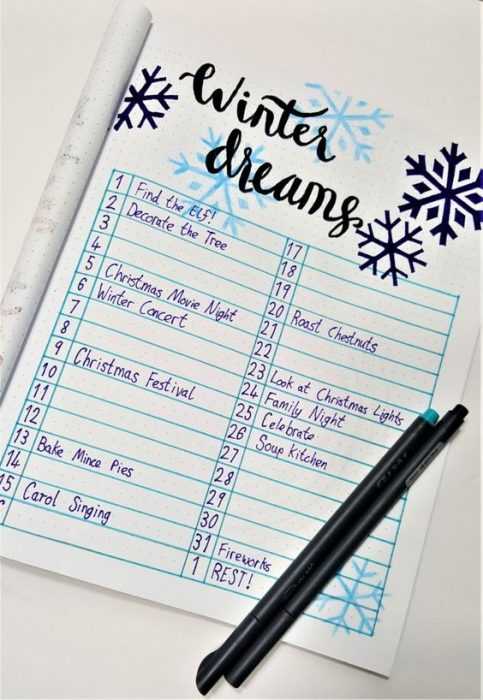 Winter
dreams
1 Find the Elf!
2 Decorate the Tree
3
4
5 Christmas Movie Night
6 Winter Concert
7
8
9 Christmas Festival
10
11
12
13 Bake Mince Pies
14
15 Carol Singing
17
18
19
20 Roast Chestnuts
21
22
23 Look at Christmas Lights
24 Family Night
25 Celebrate
26 Soup Kitchen
27
28
29
30
31 Fireworks
1 REST!